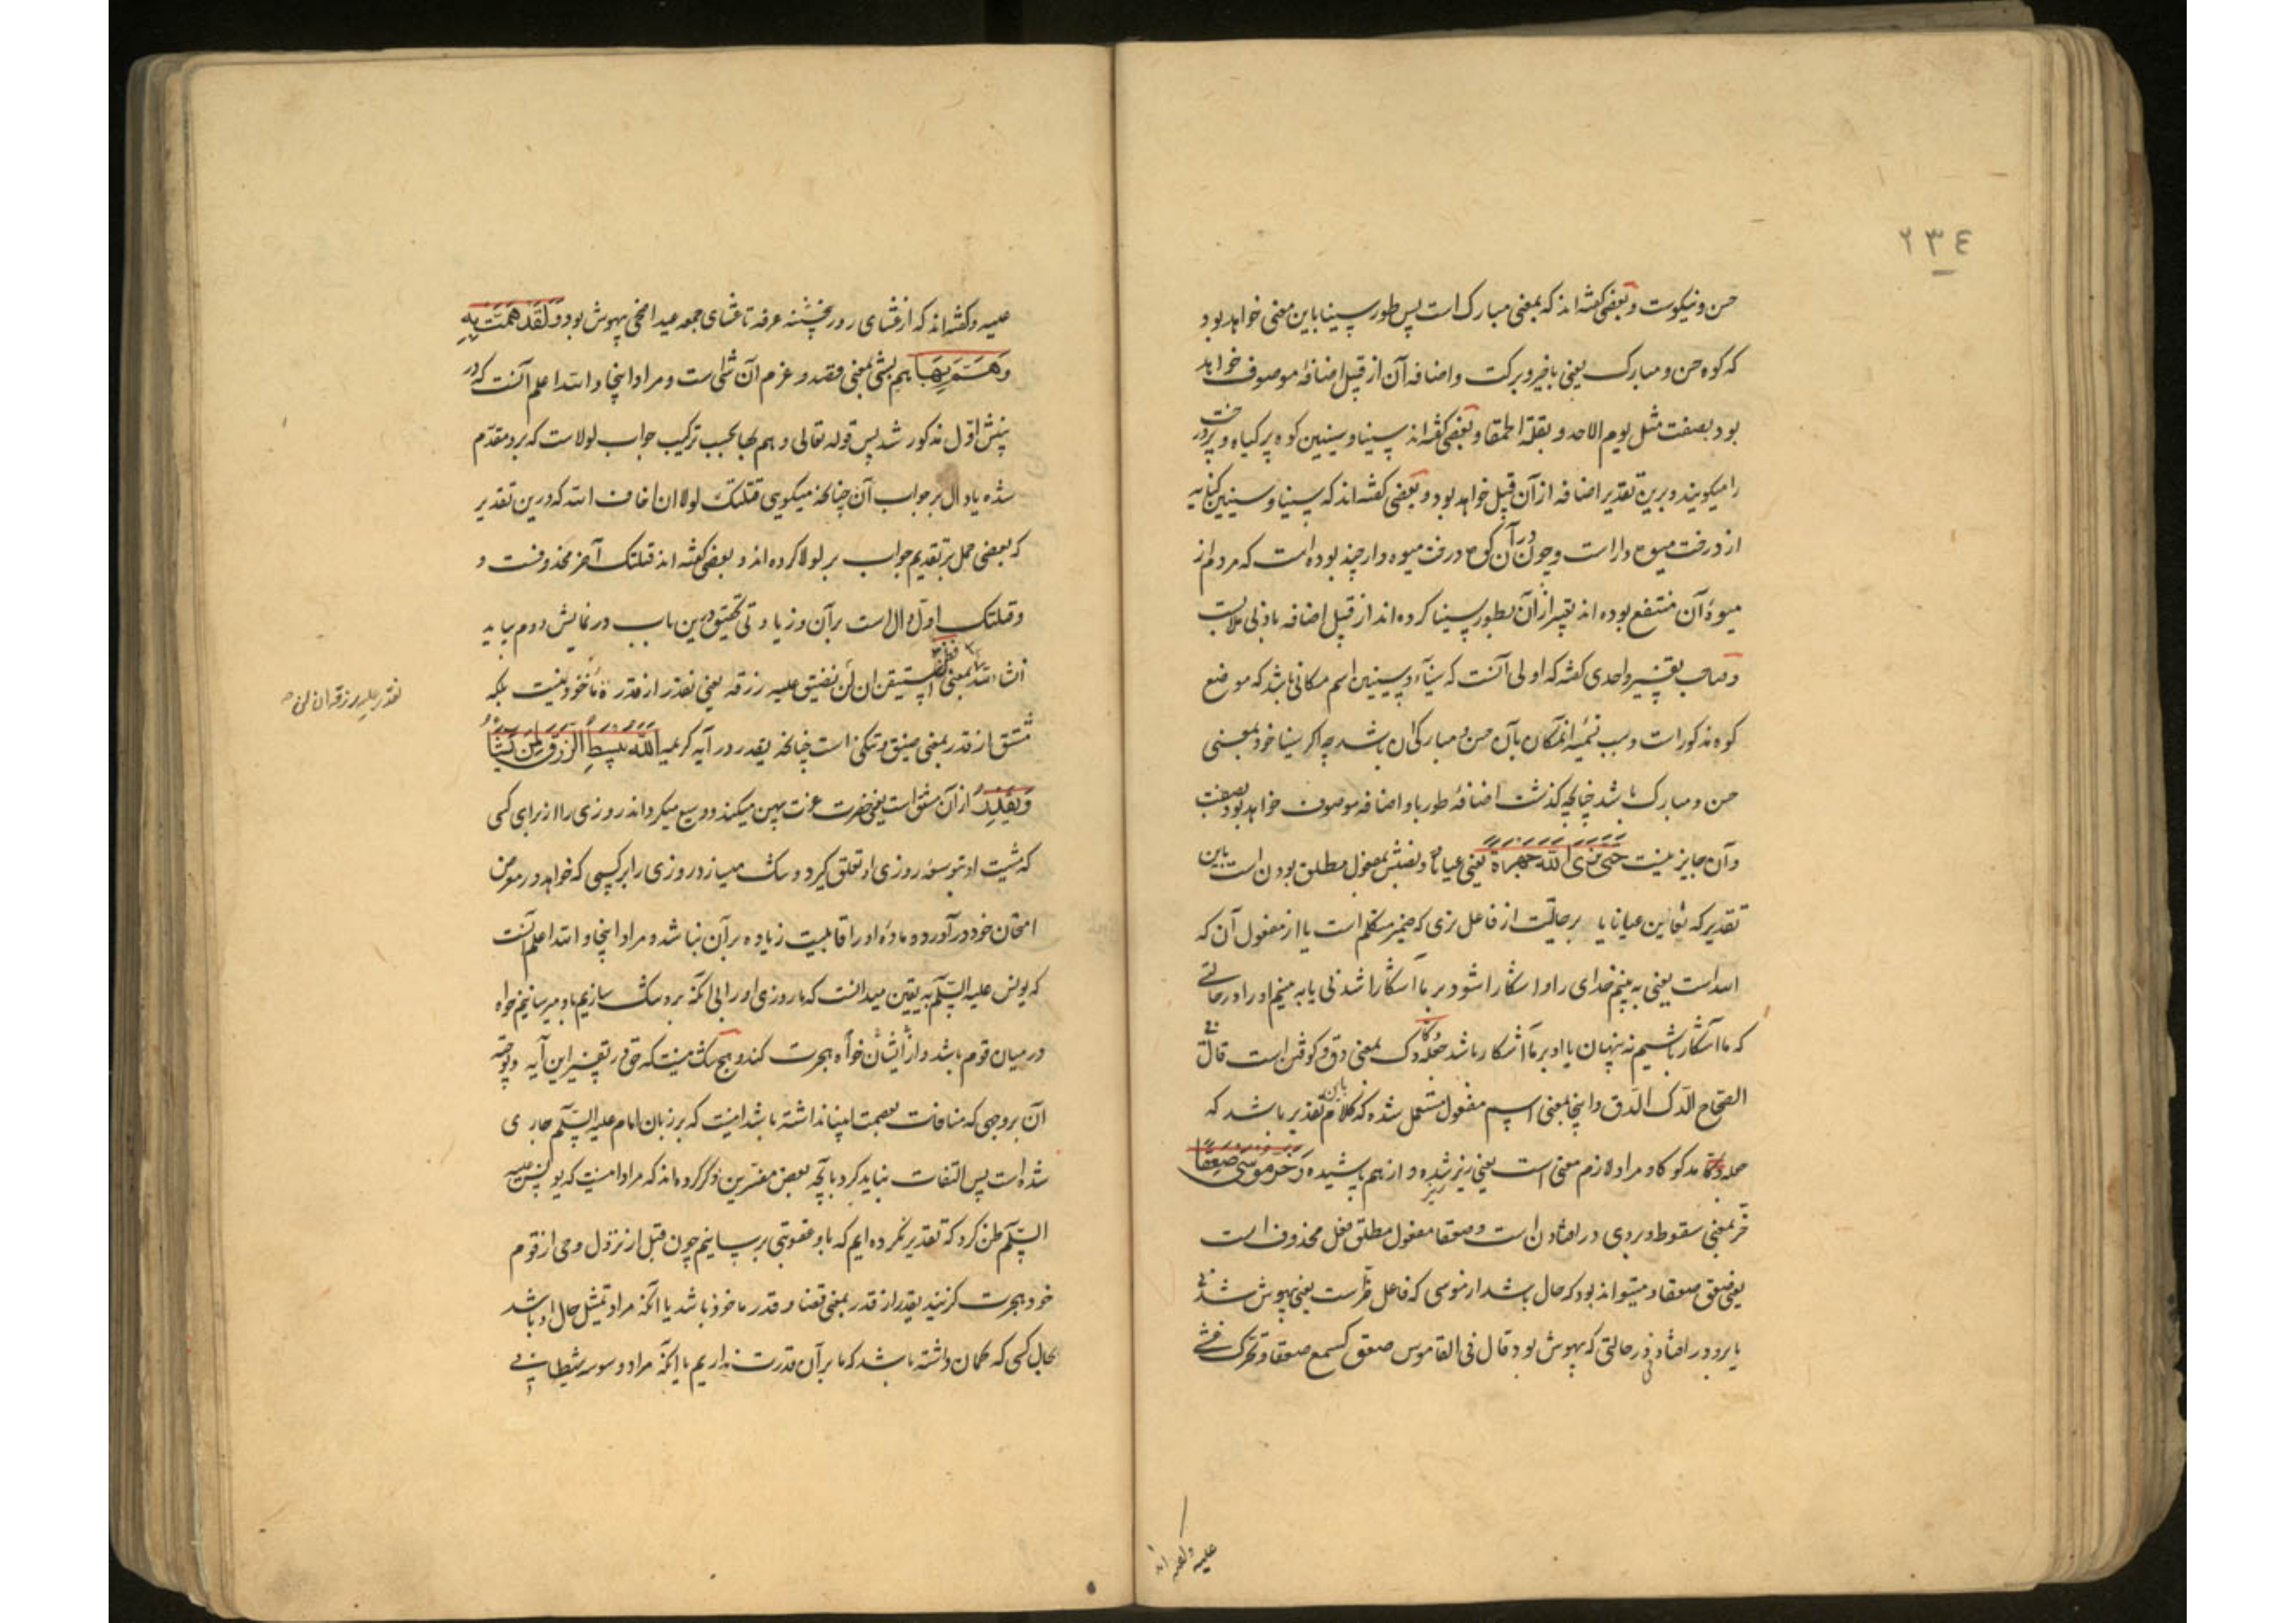 ٢٣٤
حسن و نیکوست و بعضی گفته‌اند که بمعنی مبارک است پس طور سینا باین معنی خواهد بود
که کوه حسن و مبارک یعنی با خیر و برکت و اضافه آن از قبیل اضافهٔ موصوف خواهد
بود بصفت مثل یوم الاحد و بقلة الحمقا و بعضی گفته‌اند سینا و سینین کوه پر گیاه و پر درخت
را میگویند و برین تقدیر اضافه از آن قبیل خواهد بود و بعضی گفته‌اند که سینا و سینین کنایه
از درخت میوه دار است و چون در آن کوه درخت میوه دار چند بوده است که مردم از
میوهٔ آن منتفع بوده‌اند تعبیر از آن بطور سینا کرده‌اند از قبیل اضافه بادنی ملابست
و صاحب تفسیر واحدی گفته که اولی آنست که سیناء و سینین اسم مکانی باشد که موضع
کوه مذکور است و سبب تسمیه آنمکان بآن حسن و مبارکی آن باشد چه اگر سینا خود بمعنی
حسن و مبارک باشد چنانچه گذشت اضافهٔ طور باو اضافه موصوف خواهد بود بصفت
و آن جایز نیست حَتّی نَرَی اللّٰهَ جَهرَةً یعنی عیاناً و نصبش بمفعول مطلق بودن است باین
تقدیر که نعاین عیانا یا بر حالیّت از فاعل نری که ضمیر متکلم است یا از مفعول آن که
الله است یعنی به بینم خدای را و آشکارا شود بر ما آشکارا شدنی یا به بینیم او را در حالتی
که ما آشکار باشیم نه پنهان یا او بر ما آشکار باشد جعله دکا دک بمعنی دق و کوفتن است قال فی
الصحاح الدّک الدّق و اینجا بمعنی اسم مفعول مستعمل شده که کلام باین تقدیر باشد که
جعله دکا مدکوکا و مراد لازم معنی است یعنی ریز ریز شده و از هم پاشیده وَخَرَّ مُوسی صَعِقًا
خرّ بمعنی سقوط و بروی در افتادن است و صعقا مفعول مطلق فعل محذوف است
یعنی صعق صعقا و میتواند بود که حال باشد از موسی که فاعل خرّست یعنی بیهوش شدنی
یا برو در افتاد در حالتی که بیهوش بود قال فی القاموس صعق کسمع صعقا و تحرک غشی
علیه و گفته‌اند
علیه و گفته‌اند که از غشای روز پنجشنبه عرفه تا غشای جمعه عید اضحی بیهوش بود وَلَقَد هَمَّت بِهِ
وَهَمَّ بِهَا همّ بشئ بمعنی قصد و عزم آن شئ است و مراد اینجا و الله اعلم آنست که در
بخش اوّل مذکور شد پس قوله تعالی و هم بها بحسب ترکیب جواب لولاست که برو مقدّم
شده یا دال بر جواب آن چنانچه میگویی قتلتک لولا ان اخاف الله که درین تقدیر
که بعضی حمل بر تقدیم جواب بر لولا کرده‌اند و بعضی گفته‌اند قتلتک آخر محذوفست و
و قتلتک اوّل دال است بر آن و زیادتی تحقیق درین باب در نمایش دوم بیاید
ان شاء الله فظنّ بمعنی استیقن ان لن نضیق علیه رزقه یعنی نقدر از قدرة مأخوذ نیست بلکه
نقدر علیه رزقه ان لن
مشتق از قدر بمعنی ضیق و تنگی است چنانچه یقدر در آیه کریمه اَللّٰهُ یَبسُطُ الرِّزقَ لِمَن یَشَاءُ
وَیَقدِرُ از آن مشتق است یعنی حضرت عزت پهن میکند و وسیع میگرداند روزی را از برای کسی
که مشیت او بتوسعهٔ روزی او تعلق گیرد و تنگ میسازد روزی را بر کسی که خواهد در معرض
امتحان خود در آورد و مادهٔ او را قابلیت زیاده بر آن نباشد و مراد اینجا و الله اعلم آنست
که یونس علیه السّلم به یقین میدانست که ما روزی او را بی آنکه برو تنگ سازیم باو میرسانیم خواه
در میان قوم باشد و از ایشان خواه هجرت کند و هیچ شک نیست که حق در تفسیر این آیه و توجیه
آن بروجهی که منافات بعصمت انبیا نداشته باشد اینست که بر زبان امام علیه السّلم جاری
شده است پس التفات نباید کرد بآنچه بعض مفسّرین ذکر کرده‌اند که مراد اینست که یونس علیه
السّلم ظن کرد که تقدیر نکرده ایم که باو عقوبتی برسانیم چون قبل از نزول وحی از قوم
خود هجرت گزیند یقدر از قدر بمعنی قضا و قدر مأخوذ باشد یا آنکه مراد تمثیل حال او باشد
بحال کسی که گمان داشته باشد که ما بر آن قدرت نداریم یا آنکه مراد وسوسه شیطانی